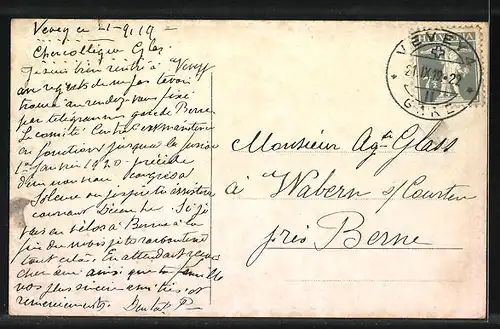 Vevey ce 21-9.19
Cher collègue Glas.
Je suis bien rentré à Vevey
au regrets de ne pas t'avoir
trouvé au rendez-vous fixé
par télégramme gare de Berne
Le comité Central est maintenu
au fonctions jusqu'à la fusion
1er Janvier 1920 précédé
d'un nouveau congrès à
Soleure ou j'espère assister
courant Décembre. Si je
vais en vélos à Berne à la
fin du mois je te raconterai
tout cela. En attendant reçois
cher ami ainsi que ta famille
nos plus sincères amitiés et
remerciements.
VEVEY
21.IX.19.-22
GARE
HELVETIA
Monsieur Agte Glass
à Wabern s/Courten
près Berne